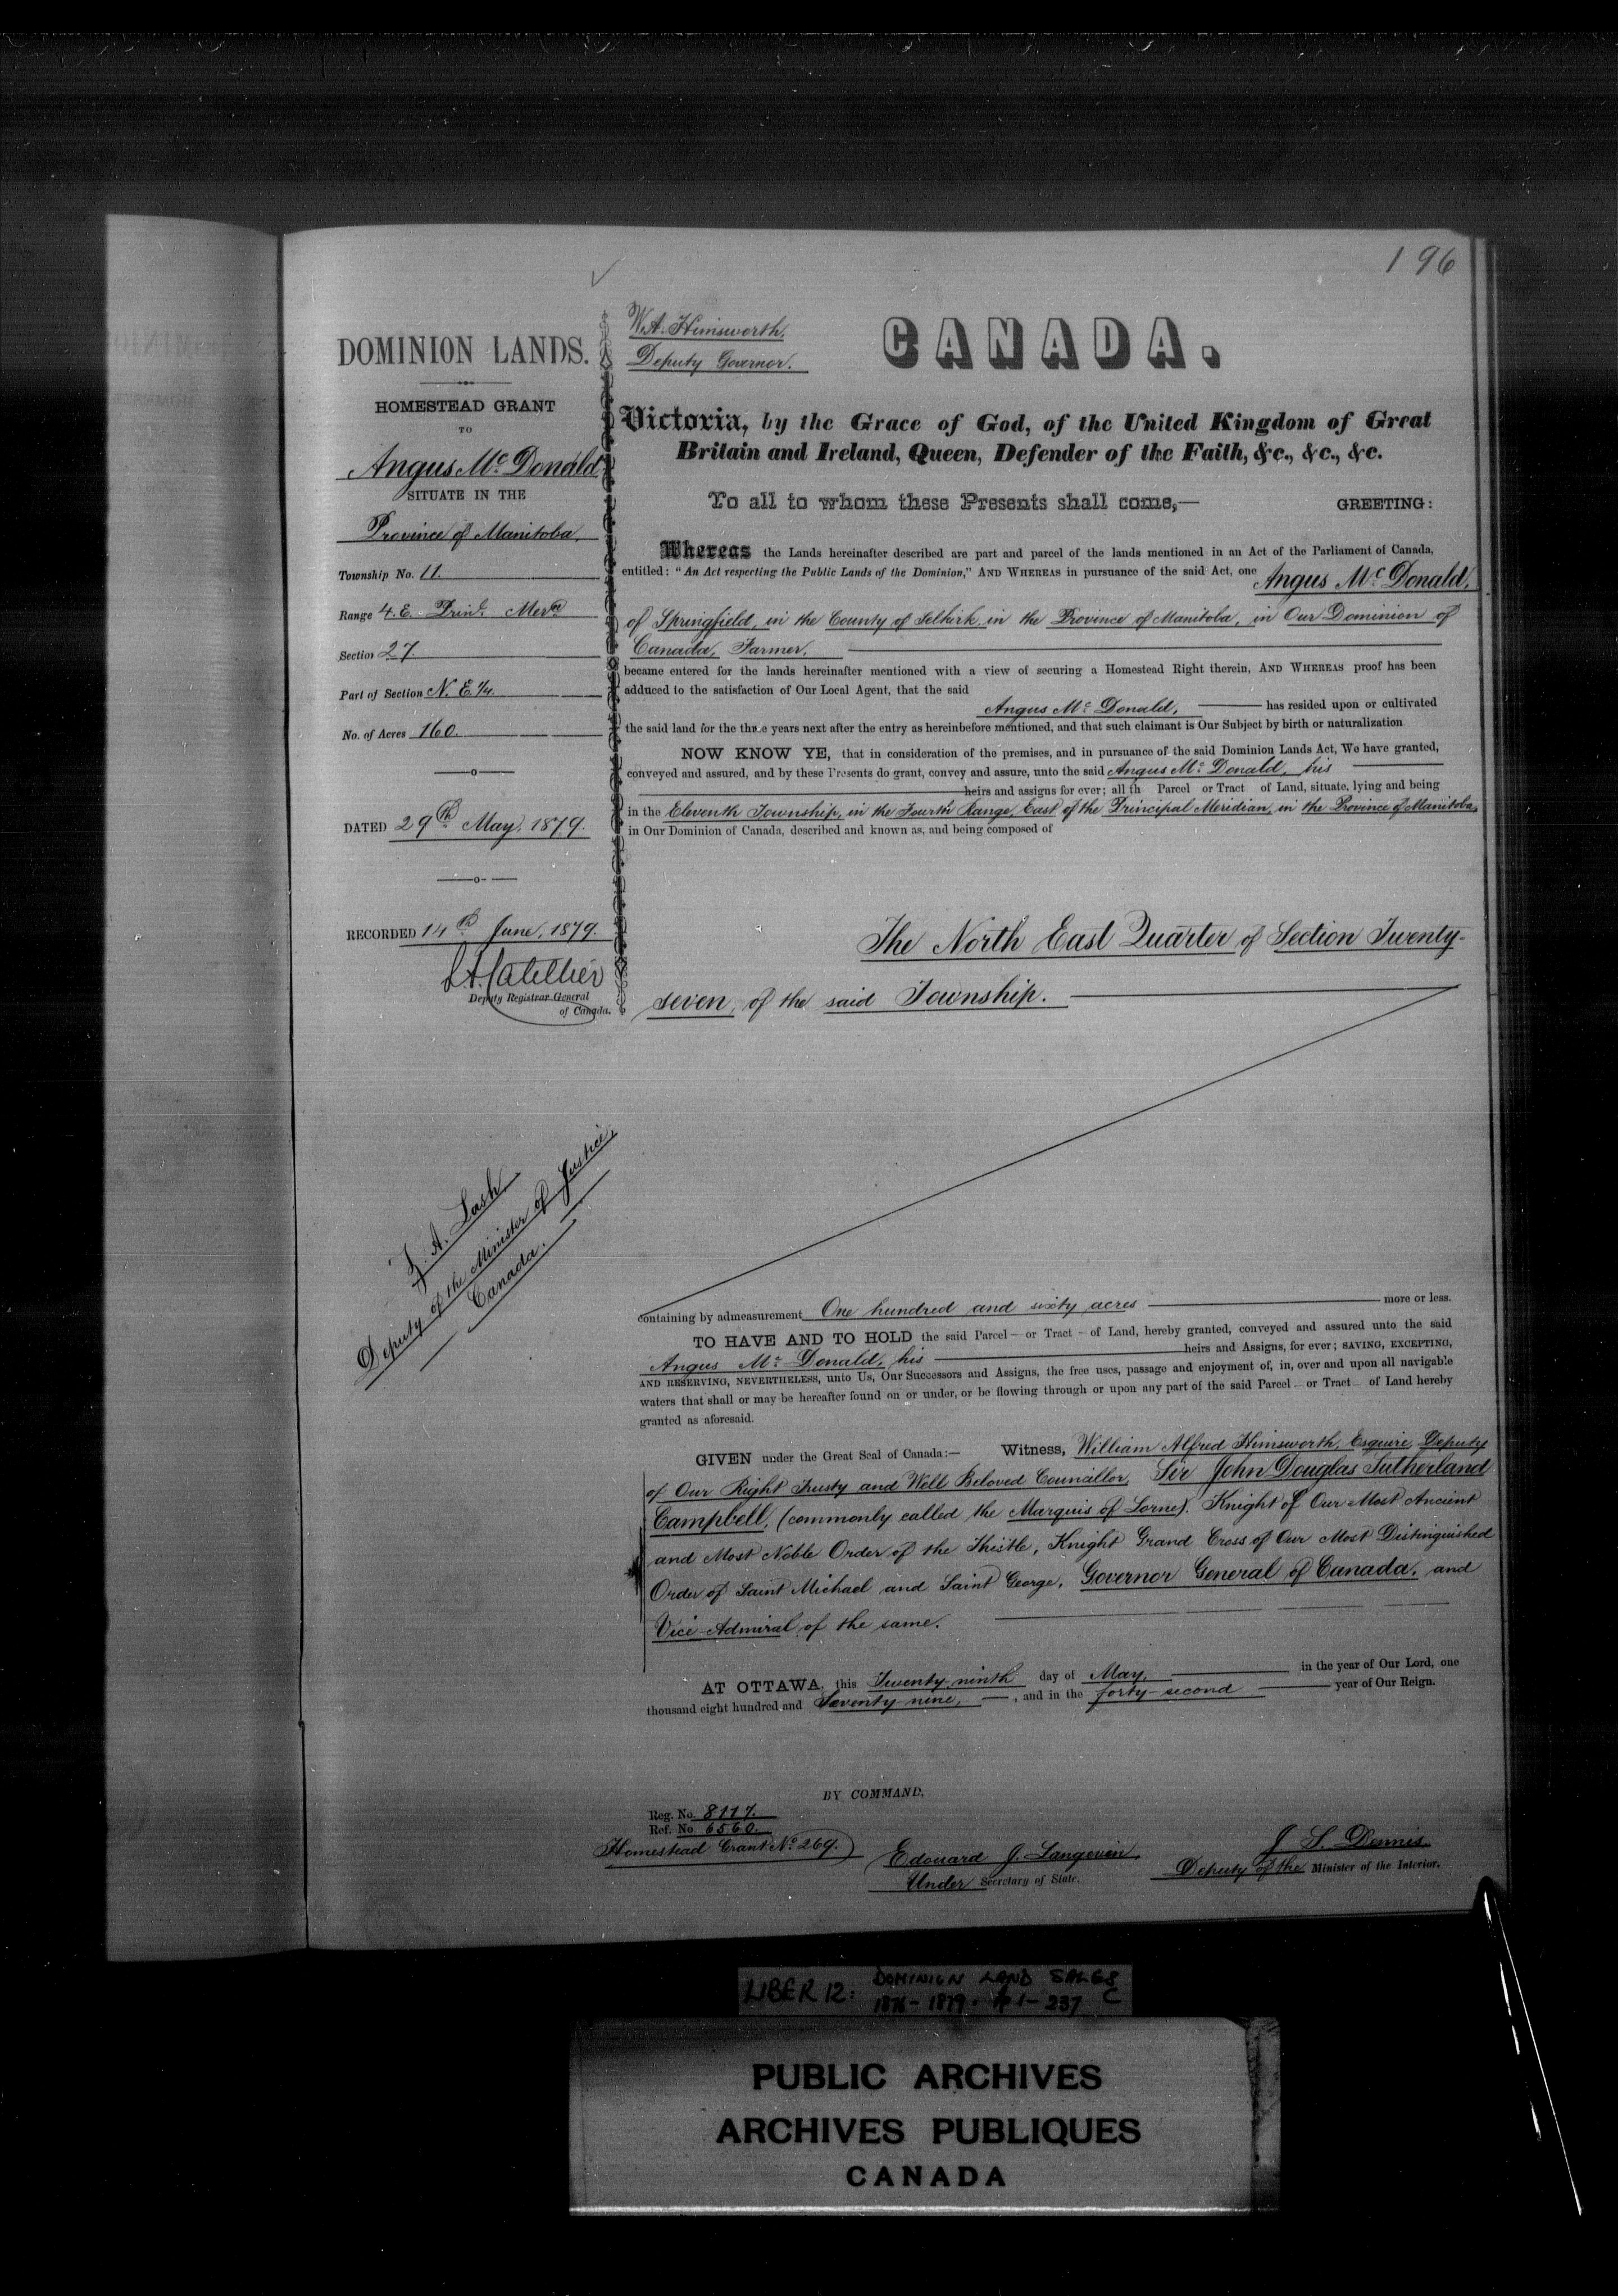 196
DOMINION LANDS.
HOMESTEAD GRANT
TO
Angus Mc Donald
SITUATE IN THE
Province of Manitoba,
Township No. 11.
Range 4. E. Prinl. Merdn
Section 27.
Part of Section N. E. ¼.
No. of Acres 160.
DATED 29th May, 1879.
RECORDED 14th June, 1879.
Deputy Registrar General
of Canada.
Z. A. Lash
Deputy of the Minister of Justice,
Canada.
W. A. Himsworth.
Deputy Governor.
CANADA.
Victoria, by the Grace of God, of the United Kingdom of Great
Britain and Ireland, Queen, Defender of the Faith, &c., &c., &c.
To all to whom these Presents shall come,— GREETING:
Whereas the Lands hereinafter described are part and parcel of the lands mentioned in an Act of the Parliament of Canada,
entitled: "An Act respecting the Public Lands of the Dominion," AND WHEREAS in pursuance of the said Act, one Angus Mc Donald,
of Springfield, in the County of Selkirk, in the Province of Manitoba, in Our Dominion of
Canada, Farmer,
became entered for the lands hereinafter mentioned with a view of securing a Homestead Right therein, AND WHEREAS proof has been
adduced to the satisfaction of Our Local Agent, that the said
Angus Mc Donald, has resided upon or cultivated
the said land for the three years next after the entry as hereinbefore mentioned, and that such claimant is Our Subject by birth or naturalization
NOW KNOW YE, that in consideration of the premises, and in pursuance of the said Dominion Lands Act, We have granted,
conveyed and assured, and by these Presents do grant, convey and assure, unto the said Angus Mc Donald, his
heirs and assigns for ever; all th Parcel or Tract of Land, situate, lying and being
in the Eleventh Township, in the Fourth Range, East of the Principal Meridian, in the Province of Manitoba,
in Our Dominion of Canada, described and known as, and being composed of
The North East Quarter of Section Twenty-
seven, of the said Township.
containing by admeasurement One hundred and sixty acres more or less.
TO HAVE AND TO HOLD the said Parcel — or Tract — of Land, hereby granted, conveyed and assured unto the said
Angus Mc Donald, his heirs and Assigns, for ever; SAVING, EXCEPTING,
AND RESERVING, NEVERTHELESS, unto Us, Our Successors and Assigns, the free uses, passage and enjoyment of, in, over and upon all navigable
waters that shall or may be hereafter found on or under, or be flowing through or upon any part of the said Parcel — or Tract — of Land hereby
granted as aforesaid.
GIVEN under the Great Seal of Canada:— Witness, William Alfred Himsworth, Esquire, Deputy
of Our Right Trusty and Well Beloved Councillor, Sir John Douglas Sutherland
Campbell, (commonly called the Marquis of Lorne). Knight of Our Most Ancient
and Most Noble Order of the Thistle, Knight Grand Cross of Our Most Distinguished
Order of Saint Michael and Saint George, Governor General of Canada, and
Vice-Admiral of the same.
AT OTTAWA, this Twenty-ninth day of May, in the year of Our Lord, one
thousand eight hundred and Seventy-nine, —, and in the forty-second year of Our Reign.
BY COMMAND,
Reg. No. 8117.
Ref. No 6560.
Homestead Grant No. 269.
Edouard J. Langevin,
Under Secretary of State.
J. S. Dennis
Deputy of the Minister of the Interior.
LIBER 12: DOMINION LAND SALES
1876-1879. # 1-237 C
PUBLIC ARCHIVES
ARCHIVES PUBLIQUES
CANADA